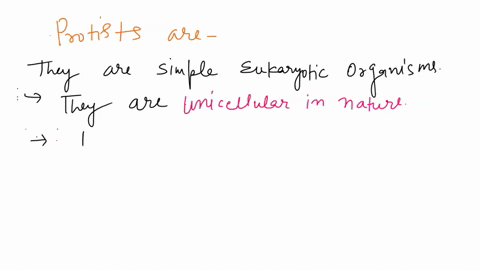 Protists are -
They are simple Eukaryotic Organisms.
→ They are Unicellular in nature.
→